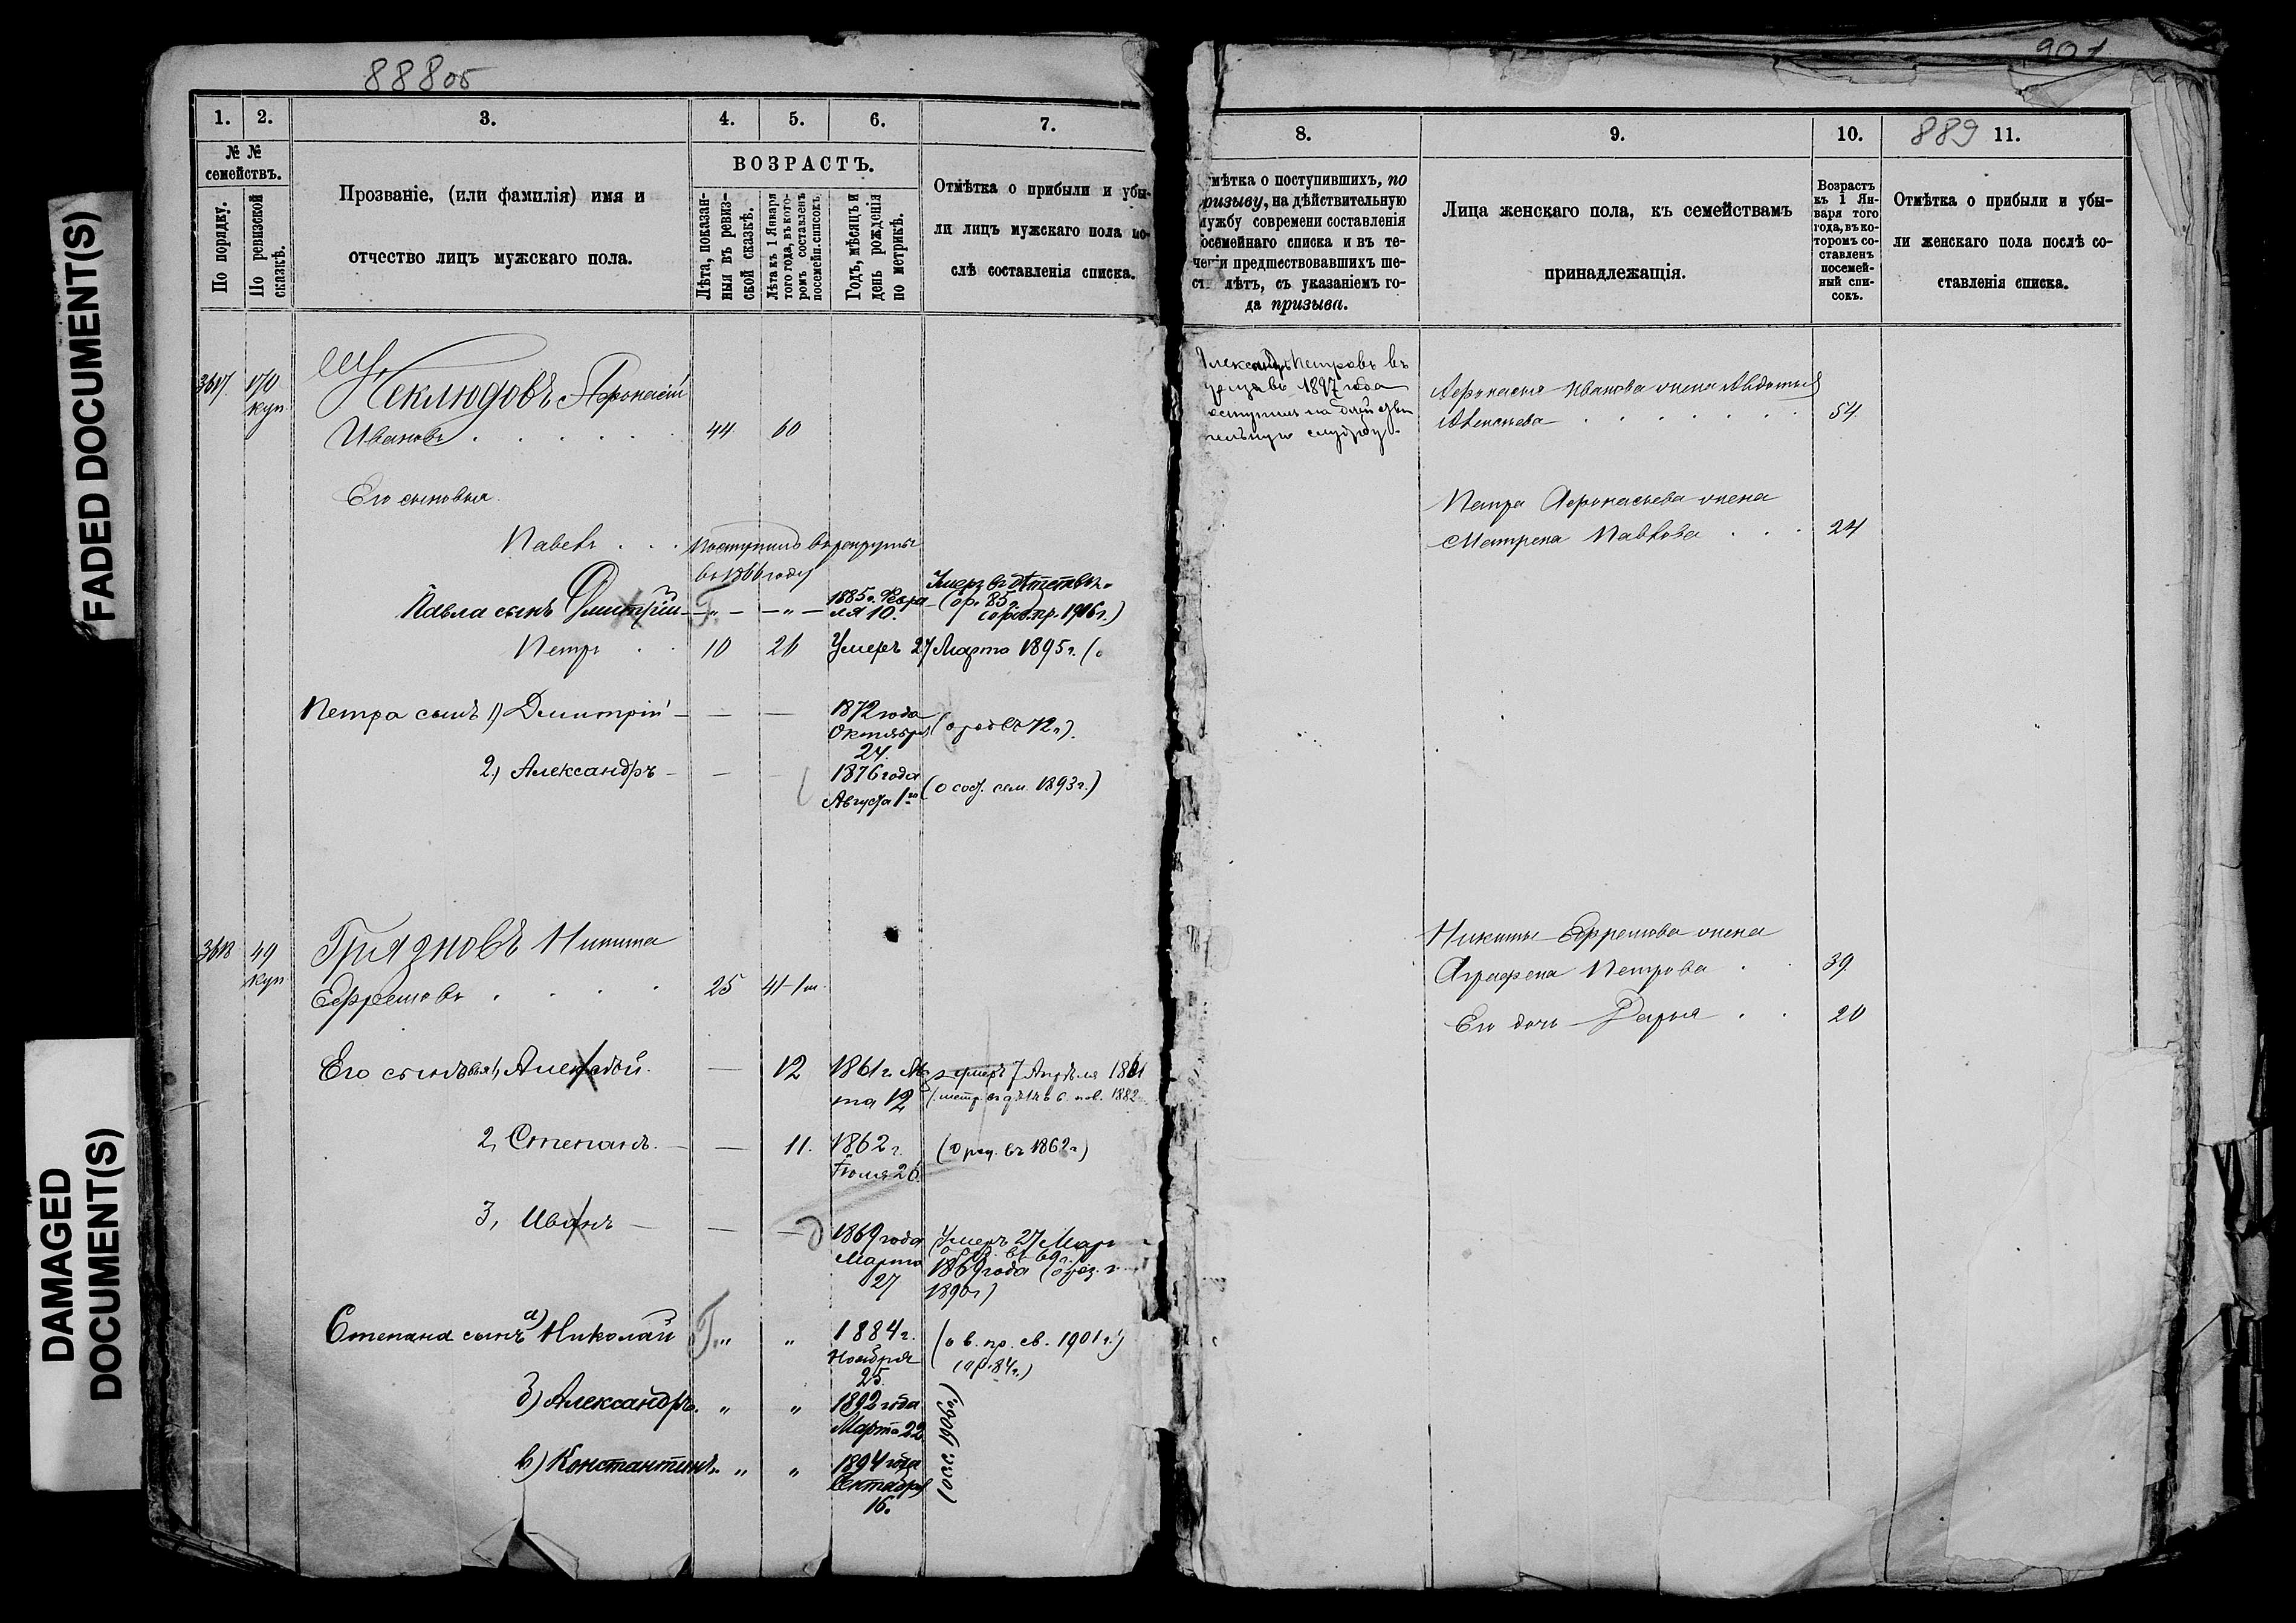 FADED DOCUMENT(S)
DAMAGED
DOCUMENT(S)
888об
1. 2. 3. 4. 5. 6. 7.
№ №
семействъ.
По порядку.
По ревизской
сказкѣ.
Прозваніе, (или фамилія) имя и
отчество лицъ мужскаго пола.
ВОЗРАСТЪ.
Лѣта, показан-
ныя въ ревиз-
ской сказкѣ.
Лѣта къ 1 Января
того года, въ кото-
ромъ составленъ
посемейн. списокъ.
Годъ, мѣсяцъ и
день рожденія
по метрикѣ.
Отмѣтка о прибыли и убы-
ли лицъ мужскаго пола по-
слѣ составленія списка.
170
куп.
Неклюдовъ Афонасій
Ивановъ 44 60
Его сыновья
Павелъ Поступилъ въ рекруты
въ 1866 году
Павла сынъ Дмитрій 1885 г. Февра
ля 10.
Умеръ въ дѣтствѣ
Петръ 10 26 Умеръ 27 Марта 1895 г.
Петра сынъ 1) Дмитрій 1872 года
Октября
24.
2) Александръ 1876 года
Августа 1го (о сост. сем. 1893 г.)
3618 49
куп
Грязновъ Никита
Ефремовъ 25 41
Его сыновья 1, Алексѣй 12 1861 г. Мар
та 12
умеръ 7 Апрѣля 1861
2, Степанъ. 11. 1862 г.
Іюля 26 (о рож. въ 1862 г)
3, Иванъ 1869 года
Марта
27
Умеръ 27 Мар
1869 года
1890 г)
Степана сынъ а) Николай 1884 г.
Ноября
25.
(о в. пр. св. 1901 г.)
(о р. 84 г.)
б) Александръ. 1892 года
Марта 22
в) Константинъ. 1894 года
Сентября
16.
(о сс. 1906 г)
901
8. 9. 10. 889 11.
мѣтка о поступившихъ, по
ризыву, на дѣйствительную
лужбу современи составленія
осемейнаго списка и въ те-
ченіи предшествовавшихъ ше-
сти лѣтъ, съ указаніемъ го-
да призыва.
Лица женскаго пола, къ семействамъ
принадлежащія.
Возрастъ
къ 1 Ян-
варя того
года, въ ко-
торомъ со-
ставленъ
посемей-
ный спи-
сокъ.
Отмѣтка о прибыли и убы-
ли женскаго пола послѣ со-
ставленія списка.
Александръ Петровъ въ
1897 года
поступилъ на дѣйстви
тельную службу.
Афонасія Иванова жена Авдотья
Алексѣева 54.
Петра Афонасьева жена
Матрена Павлова 24
Никиты Ефремова жена
Аграфена Петрова 39
Его дочь Дарья 20